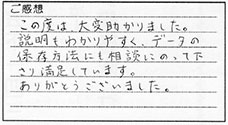 ご感想
この度は、大変助かりました。
説明もわかりやすく、データの
保存方法にも相談にのって下
さり満足しています。
ありがとうございました。